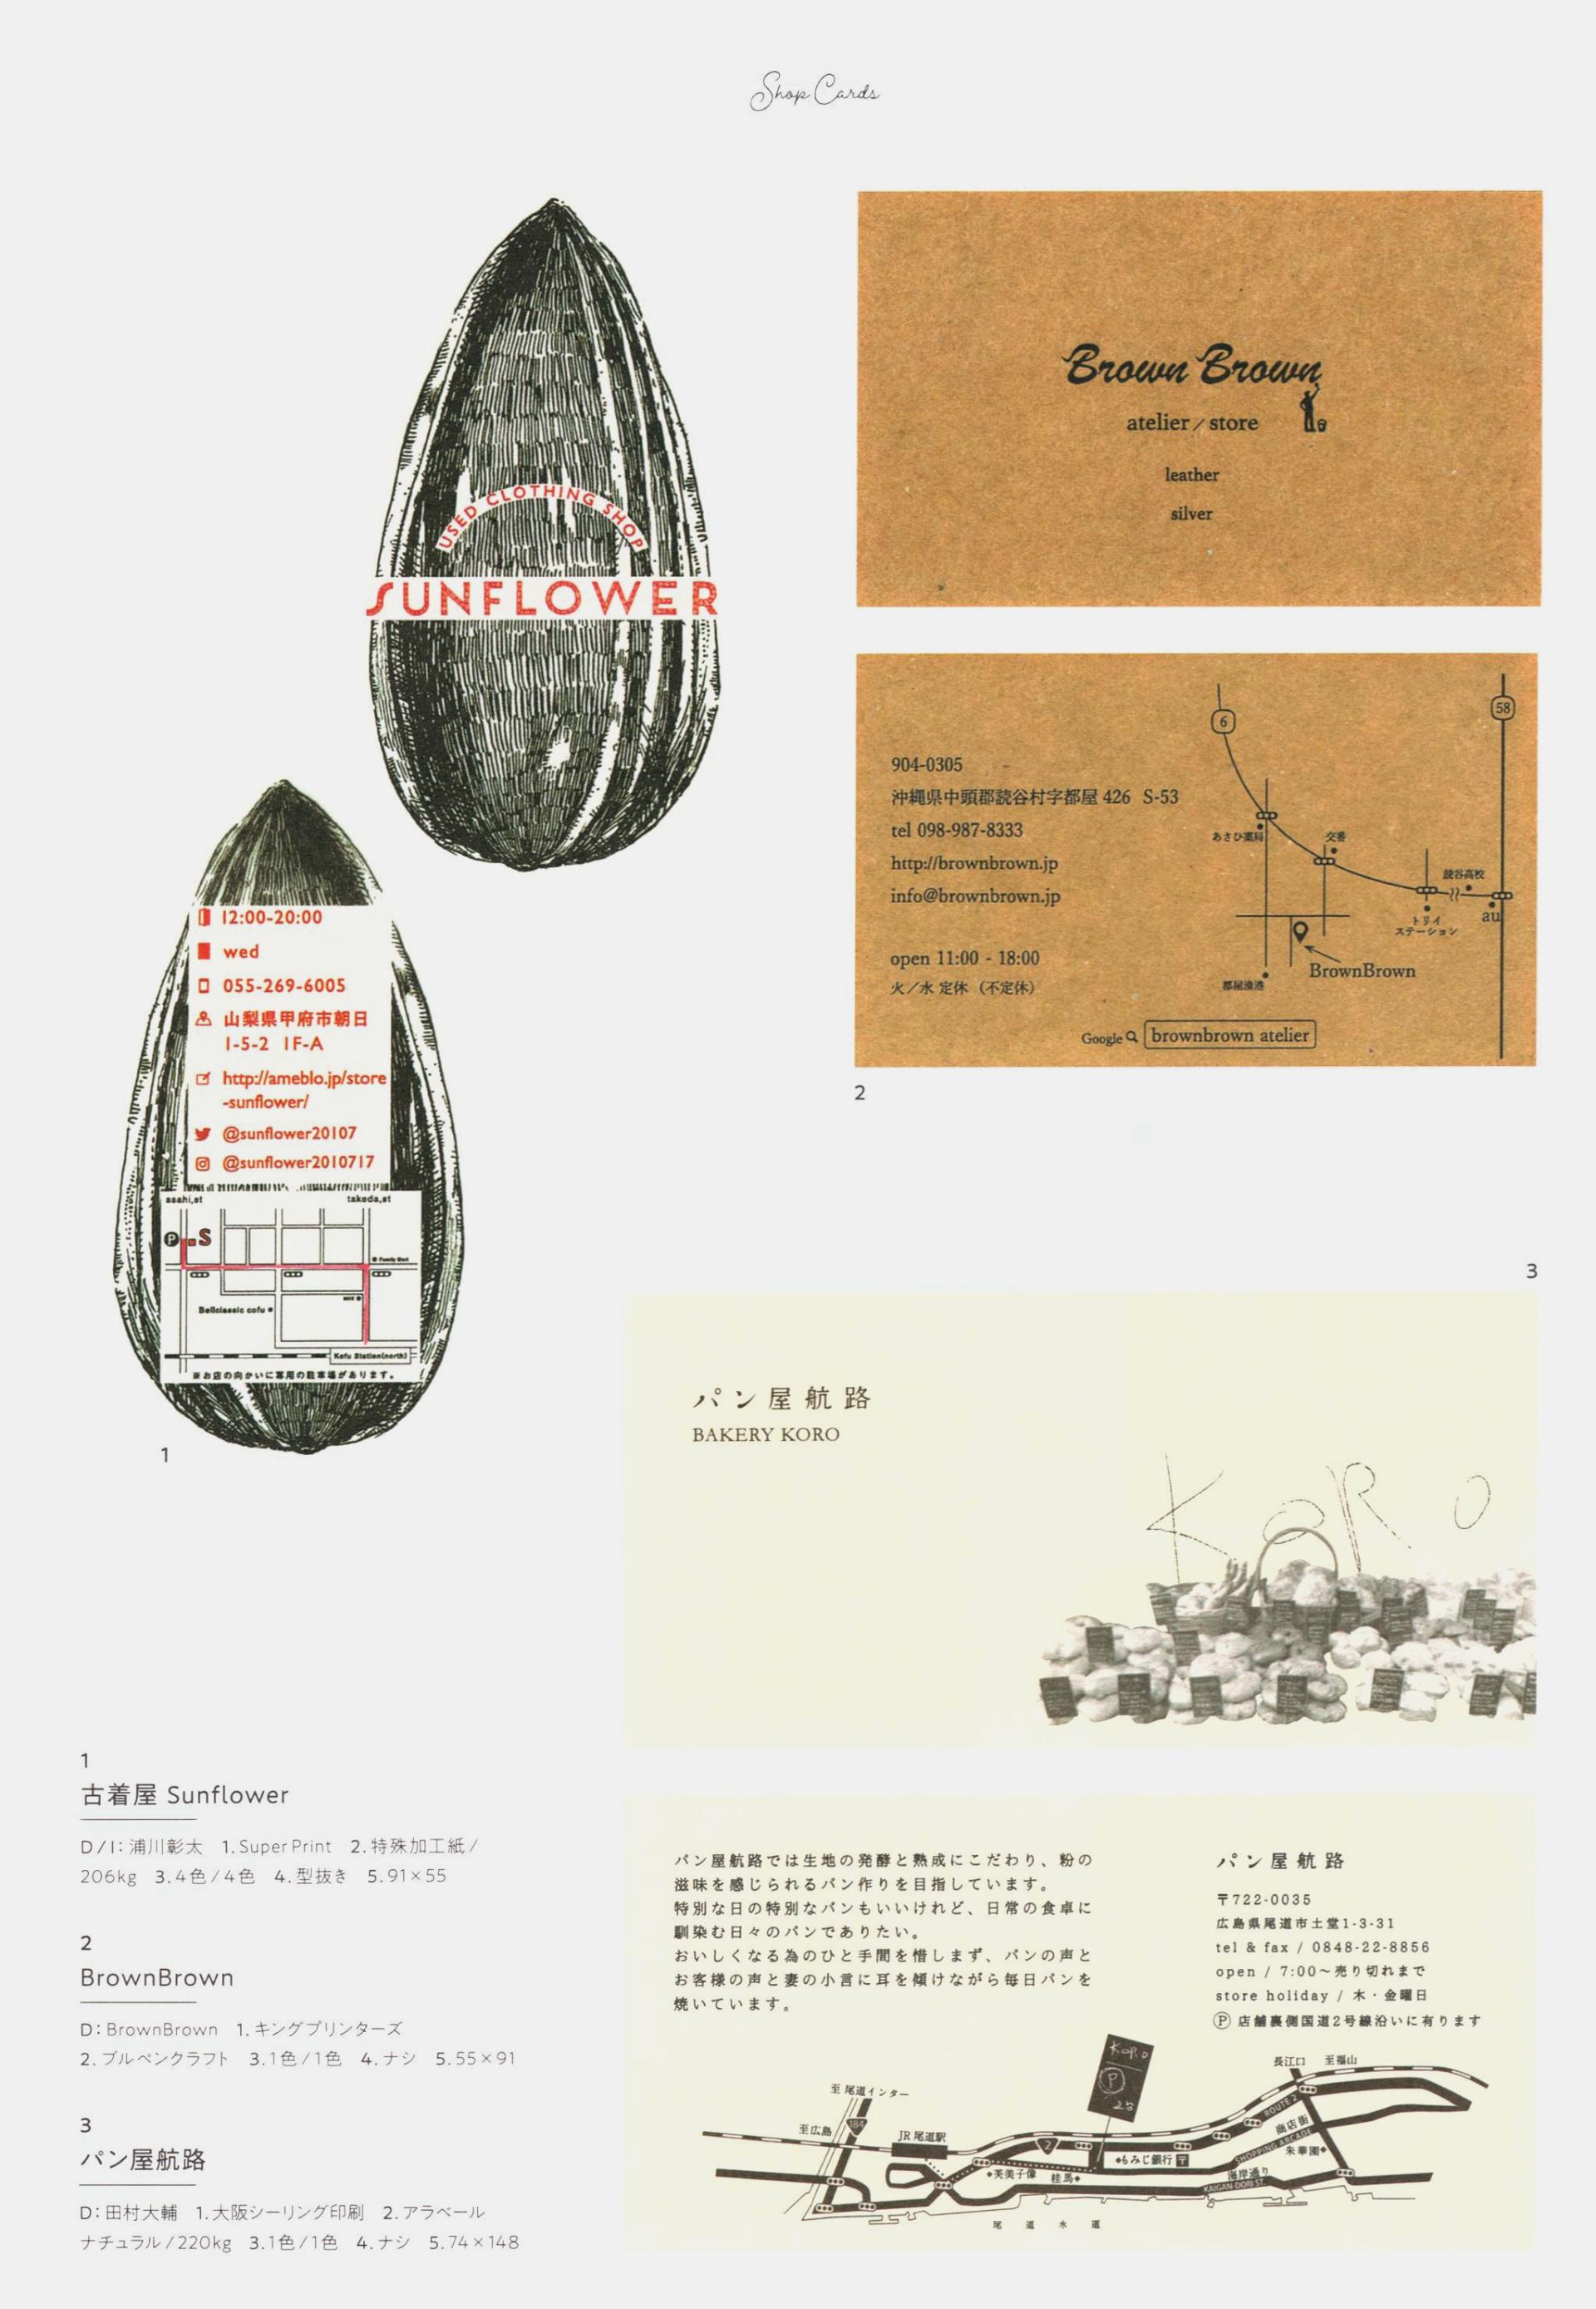 Shop Cards
USED CLOTHING SHOP
SUNFLOWER
12:00-20:00
wed
055-269-6005
山梨県甲府市朝日
1-5-2 1F-A
http://ameblo.jp/store
-sunflower/
@sunflower20107
@sunflower2010717
asahi,st
takeda,st
P S
Family Mart
Bellclassic cofu
Kofu Station(north)
※お店の向かいに専用の駐車場があります。
1
Brown Brown
atelier/store
leather
silver
904-0305
沖縄県中頭郡読谷村字都屋 426 S-53
tel 098-987-8333
http://brownbrown.jp
info@brownbrown.jp
open 11:00 - 18:00
火/水 定休（不定休）
6
58
あさひ薬局
交番
読谷高校
トリイ
ステーション
au
BrownBrown
都屋漁港
Google brownbrown atelier
2
3
パン屋航路
BAKERY KORO
KORO
パン屋航路では生地の発酵と熟成にこだわり、粉の
滋味を感じられるパン作りを目指しています。
特別な日の特別なパンもいいけれど、日常の食卓に
馴染む日々のパンでありたい。
おいしくなる為のひと手間を惜しまず、パンの声と
お客様の声と妻の小言に耳を傾けながら毎日パンを
焼いています。
パン屋航路
〒722-0035
広島県尾道市土堂1-3-31
tel & fax / 0848-22-8856
open / 7:00〜売り切れまで
store holiday / 木・金曜日
Ⓟ 店舗裏側国道2号線沿いに有ります
KORO
P
23
長江口
至福山
至 尾道インター
至広島
184
JR 尾道駅
2
ROUTE 2
商店街
SHOPPING ARCADE
朱華園
もみじ銀行
芙美子像
桂馬
海岸通り
KAIGAN-DORI ST.
尾道水道
1
古着屋 Sunflower
D/I: 浦川彰太 1.Super Print 2.特殊加工紙/
206kg 3.4色/4色 4.型抜き 5.91×55
2
BrownBrown
D: BrownBrown 1.キングプリンターズ
2.ブルペンクラフト 3.1色/1色 4.ナシ 5.55×91
3
パン屋航路
D: 田村大輔 1.大阪シーリング印刷 2.アラベール
ナチュラル/220kg 3.1色/1色 4.ナシ 5.74×148